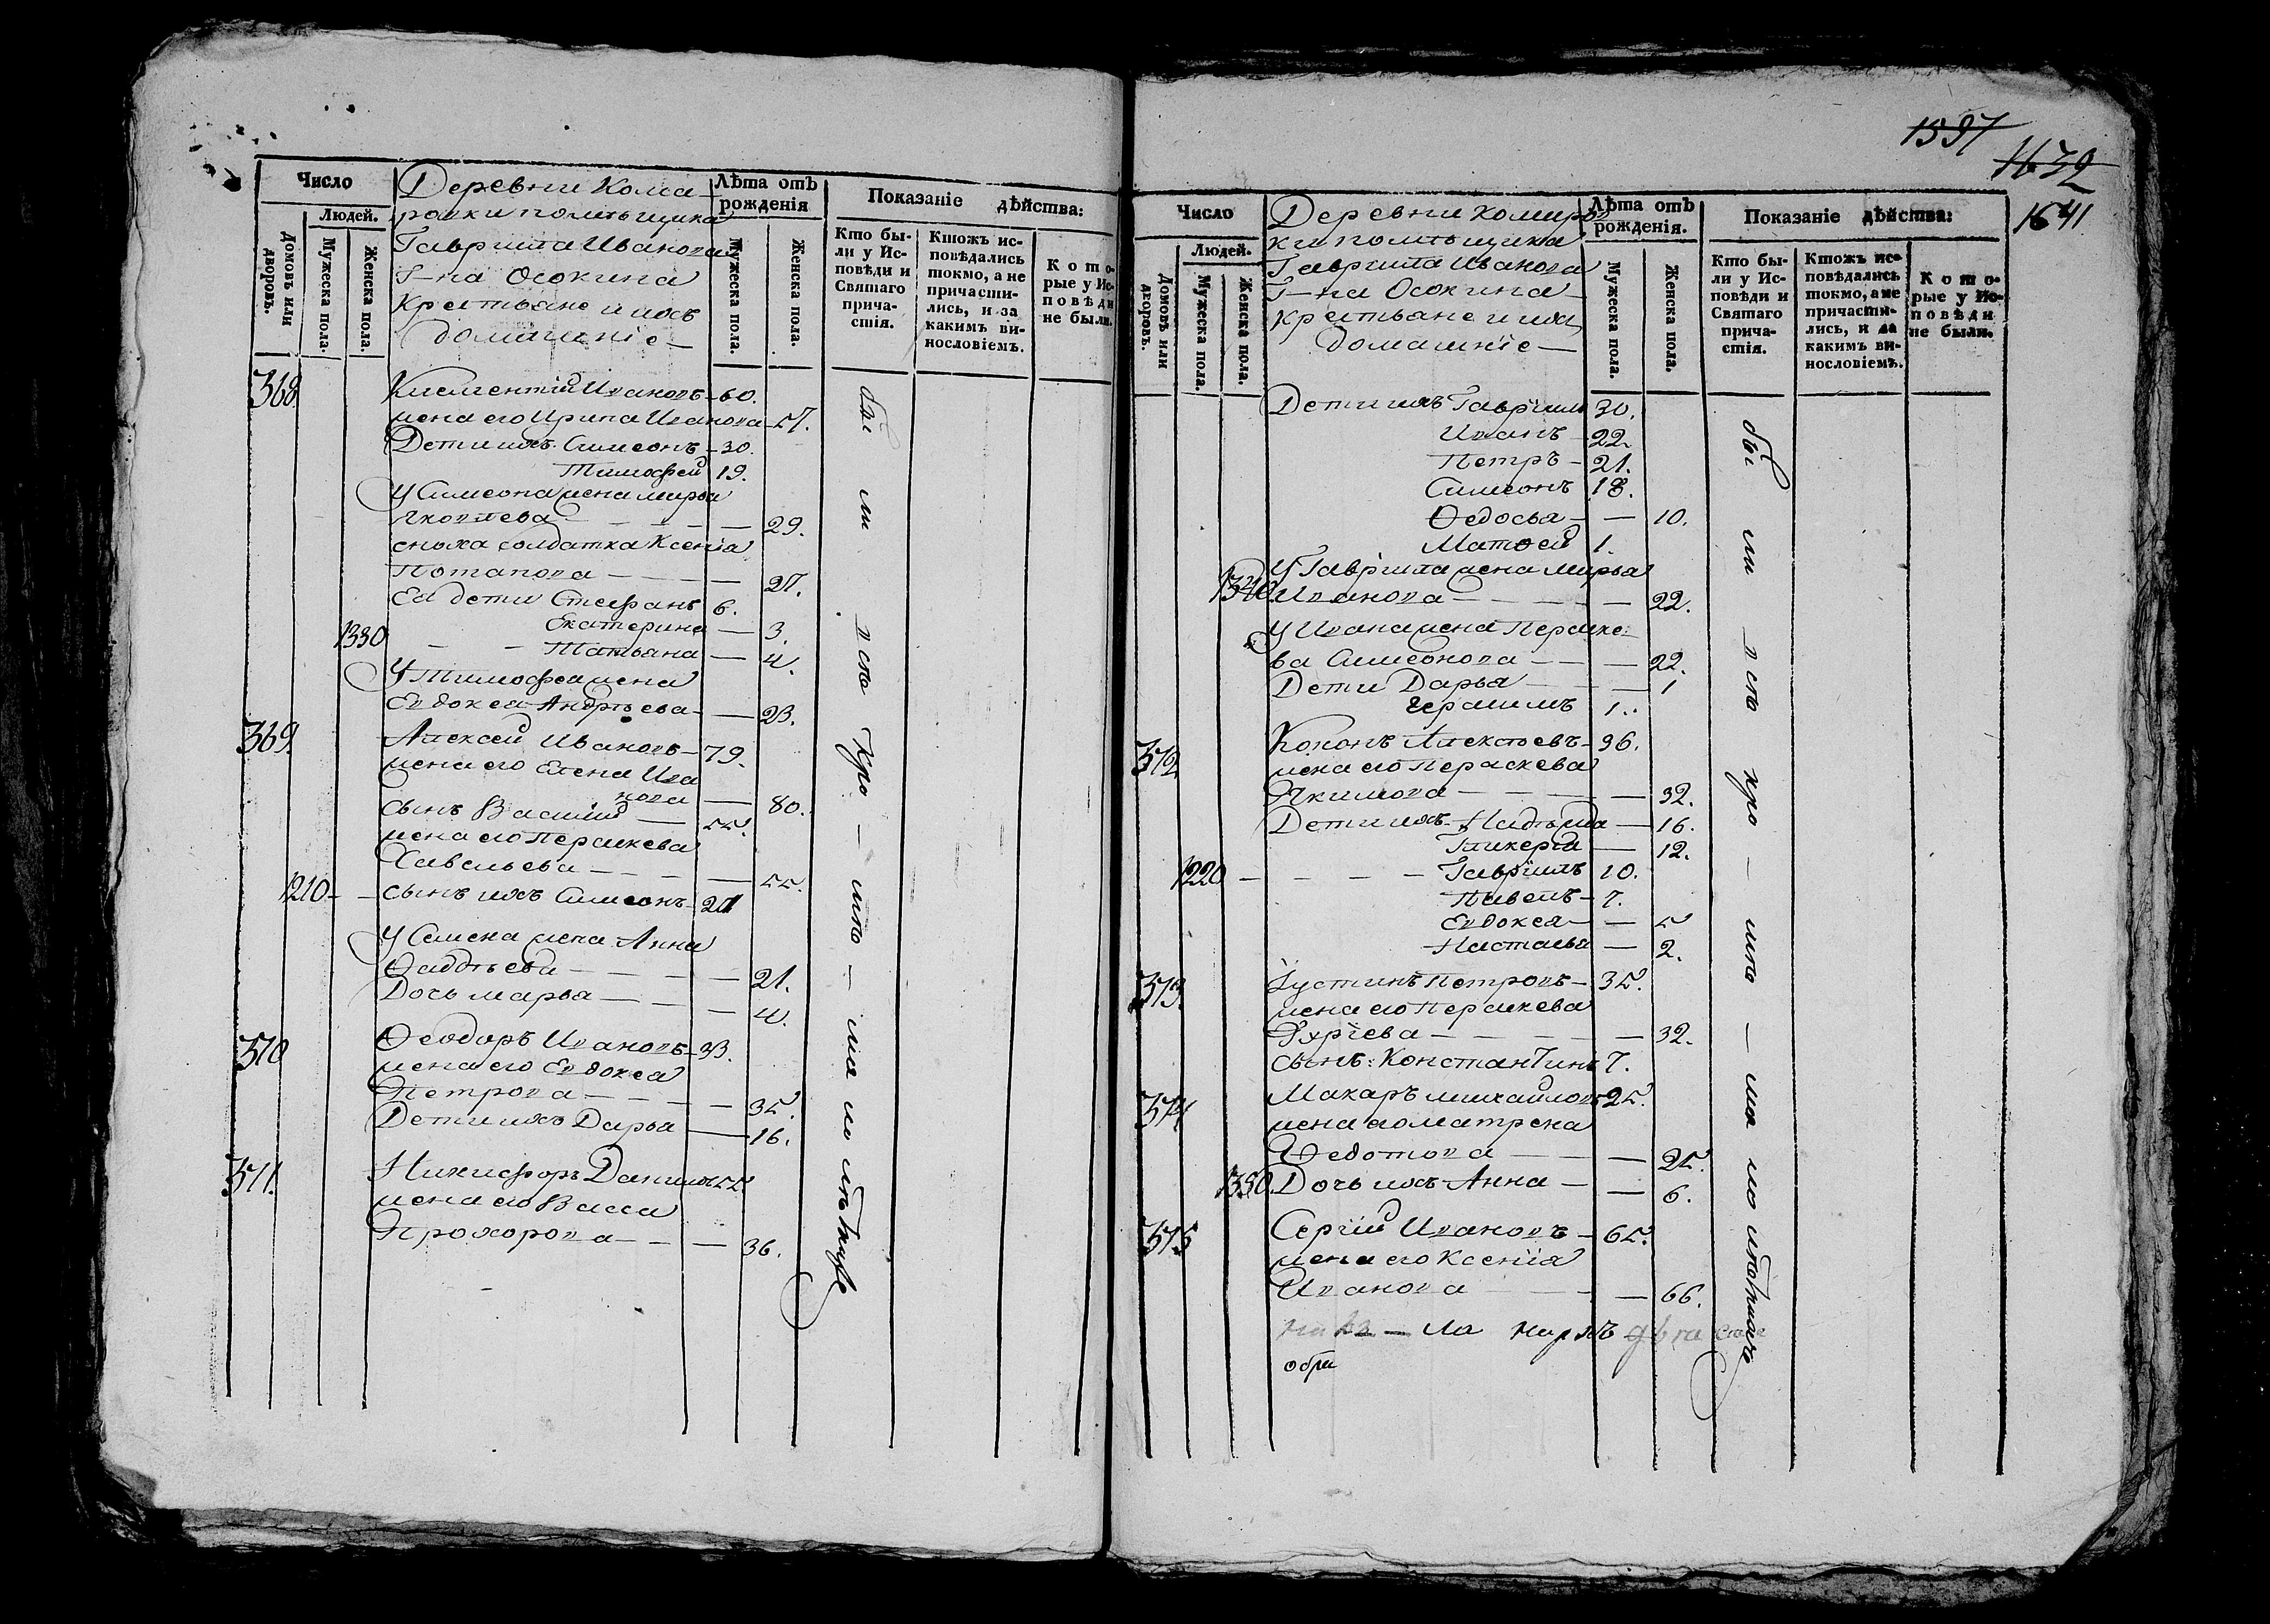 Число
Людей.
Домовъ или дворовъ.
Мужеска пола.
Женска пола.
Деревни Кома
ровки помѣщика
Гавриила Иванова
Г-на Осокина
крестьяне и ихъ
домашнiе
Лѣта отъ рожденiя
Мужеска пола.
Женска пола.
Показанiе дѣйства:
Кто бы-
ли у Ис-
повѣди и
Святаго
прича-
стiя.
Ктожъ ис-
повѣдались
токмо, а не
причасти-
лись, и за
какимъ ви-
нословiемъ.
Кото-
рые у Ис-
повѣди
не были.
368. Климентiй Ивановъ 60.
жена его Ирина Иванова 57.
Дети ихъ Симеонъ 30.
Тимофей 19.
У Симеона жена Марья
Яковлева 29.
сноха солдатка Ксенiа
Потапова 27.
Еа дети Стефанъ 6.
Екатерина 3.
1330 Татьяна 4.
У Тимофеа жена
Евдокеа Андрѣева 23.
369. Алексей Ивановъ 79.
жена его Елена Ива
нова 80.
сынъ Василий 55.
жена его Параскева
Савельева 55.
1210 сынъ ихъ Симеонъ 21
У Семена жена Анна
Фаддѣева 21.
Дочь марьа 4.
370 Феодоръ Ивановъ 33.
жена его Евдокеа
Петрова 35.
Дети ихъ Дарьа 16.
371. Никифоръ Данилов 55.
жена его Васса
Прохорова 36.
бы ли всѣ кро мѣ ма ло лѣтнихъ
1597
1632
1641
Число
Людей.
Домовъ или дворовъ.
Мужеска пола.
Женска пола.
Деревни Комаров
ки помѣщика
Гавриила Иванова
Г-на Осокина
крестьяне и ихъ
домашнiе
Лѣта отъ рожденiя.
Мужеска пола.
Женска пола.
Показанiе дѣйства:
Кто бы-
ли у Ис-
повѣди и
Святаго
прича-
стiя.
Ктожъ ис-
повѣдались
токмо, а не
причасти-
лись, и за
какимъ ви-
нословiемъ.
Кото-
рые у Ис-
повѣди
не были.
Дети ихъ Гаврiилъ 30.
Иванъ 22.
Петръ 21.
Симеонъ 18.
Федосьа 10.
Матѳей 1.
У Гаврiила жена Марьа
1340 Иванова 22.
У Ивана жена Параске
ва Симеонова 22.
Дети Дарьа 1
Герасимъ 1.
372 Кононъ Алексѣевъ 36.
жена его Параскева
Якимова 32.
Дети ихъ Надѣжда 16.
Гликерiа 12.
1220 Гаврiилъ 10.
Павелъ 7.
Евдокеа 5
Настасьа 2.
373. Iустинъ Петровъ 35.
жена его Параскева
32.
сынъ: Константинъ 7.
374 Макаръ Михайловъ 25.
жена его Матрена
Федотова 25.
1350. Дочь ихъ Анна 6.
375 Сергiй Ивановъ 65.
жена его Ксенiа
Иванова 66.
бы ли всѣ кро мѣ ма ло лѣтнихъ